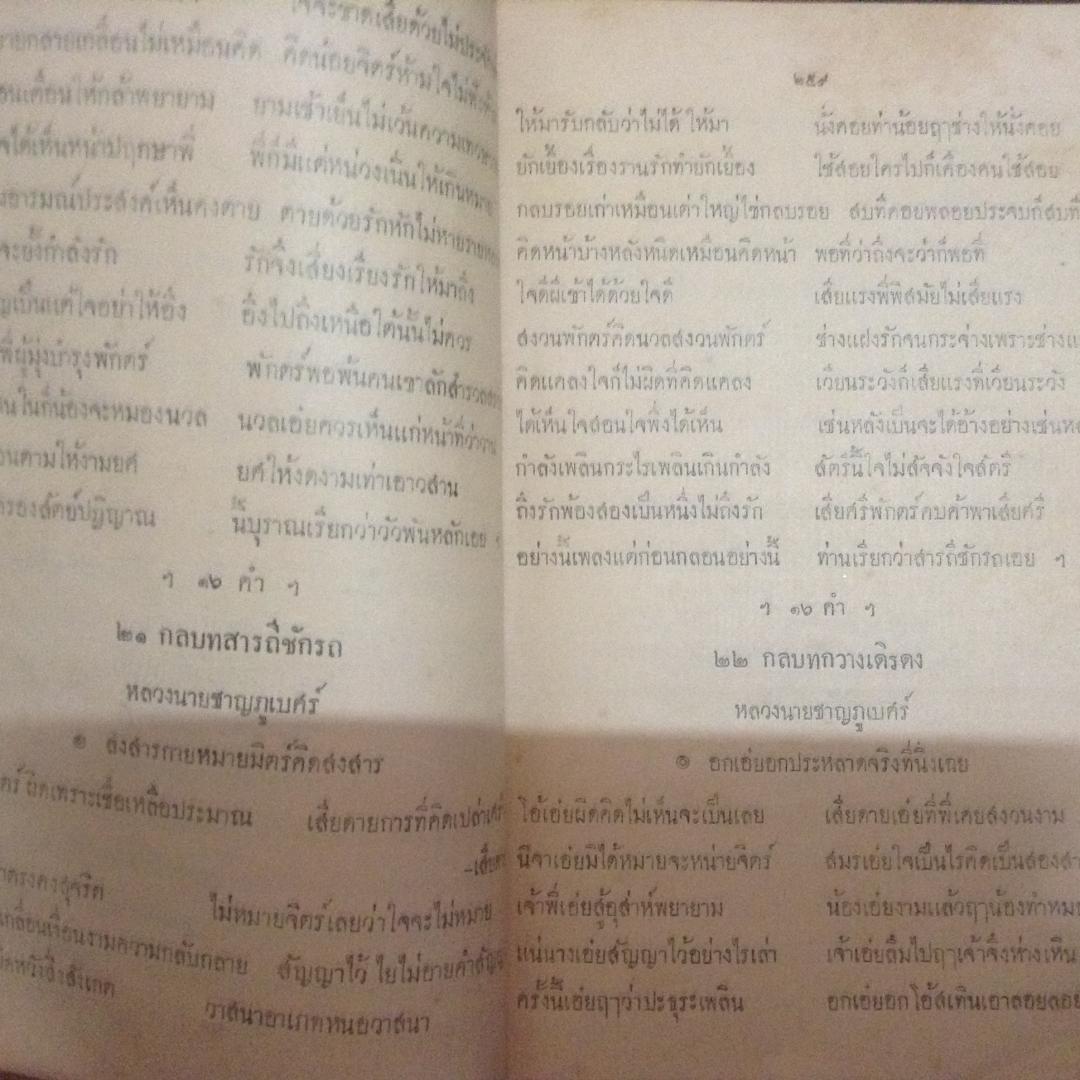 ใจจะขาดเสียด้วยไม่
กลายเกลื่อนไม่เหมือนคิด คิดน้อยจิตร์ห้ามใจไม่
เตือนให้กล้าพยายาม ยามเช้าเย็นไม่เว้นความ
ได้เห็นหน้าปฤกษาพี่ พี่ก็มีแต่หน่วงเนิ่นให้เกินหมาย
อารมณ์ประสงค์เห็นคงตาย ตายด้วยรักหักไม่หาย
จะยั้งกำลังรัก รักจึงเสี่ยงเรียงรักให้มาถึง
เป็นแต่ใจอย่าให้อึง อึงไปถึงเหนือใต้นั้นไม่ควร
ที่ผู้มุ่งบำรุงพักตร์ พักตร์พอพ้นคนเขาลัก
ในก็น้องจะหมองนวล นวลเอ๋ยควรเห็นแก่หน้าที่ว่าวาน
ตามให้งามยศ ยศให้งดงามเท่าเอาวสาน
ครองสัตย์ปฏิญาณ นี้บุราณเรียกว่าวัวพันหลักเอย
ฯ ๑๖ คำ ฯ
๒๑ กลบทสารถีชักรถ
หลวงนายชาญภูเบศร์
๏ สงสารกายหมายมิตร์คิดสงสาร
เพราะเชื่อเหลือประมาณ เสียดายการที่คิดเปล่า
-เสีย
ตรงคงสุจริต ไม่หมายจิตร์เลยว่าใจจะไม่หมาย
เกลื่อนเงื่อนงามความกลับกลาย สัญญาไว้ ใยไม่อายคำสัญ
หวังสิ่งสังเกต วาสนาอาเภทหนอวาสนา
๒๕๙
ให้มารับกลับว่าไม่ได้ ให้มา นั่งคอยท่าน้อยฤๅช่างให้นั่งคอย
ยักเยื้องเรื่องรานรักทำยักเยื้อง ใช้สอยใครไปก็เคืองคนใช้สอย
กลบรอยเก่าเหมือนเต่าใหญ่ไข่กลบรอย สบที่คอยพลอยประจบก็สบที่
คิดหน้าบ้างหลังหนิดเหมือนคิดหน้า พอที่ว่าถึงจะว่าก็พอที่
ใจดีผีเข้าได้ด้วยใจดี เสียแรงพี่พิสมัยไม่เสียแรง
สงวนพักตร์คิดนวลสงวนพักตร์ ช่างแฝงรักจนกระจ่างเพราะช่าง
คิดแคลงใจก็ไม่ผิดที่คิดแคลง เวียนระวังก็เสียแรงที่เวียนระวัง
ได้เห็นใจสอนใจพึ่งได้เห็น เช่นหลังเป็นจะได้อ้างอย่างเช่นหลัง
กำลังเพลินกระไรเพลินเกินกำลัง สัตรีนี้ใจไม่สัจจังใจสัตรี
ถึงรักพ้องสองเป็นหนึ่งไม่ถึงรัก เสียศรีพักตร์คบค้าพาเสียศรี
อย่างนี้เพลงแต่ก่อนกลอนอย่างนี้ ท่านเรียกว่าสารถีชักรถเอย ฯ
ฯ ๑๖ คำ ฯ
๒๒ กลบทกวางเดิรดง
หลวงนายชาญภูเบศร์
๏ อกเอ๋ยอกประหลาดจริงที่นิ่งเฉย
โอ้เอ๋ยผิดคิดไม่เห็นจะเป็นเลย เสียดายเอ๋ยที่พี่เคยสงวนงาม
นิจาเอ๋ยมิได้หมายจะหน่ายจิตร์ สมรเอ๋ยใจเป็นไรคิดเป็นสองสาม
เจ้าพี่เอ๋ยสู้อุส่าห์พยายาม น้องเอ๋ยงามแล้วฤๅน้องทำหมาง
แน่นางเอ๋ยสัญญาไว้อย่างไรเล่า เจ้าเอ๋ยลืมไปฤๅเจ้าจึงห่างเหิน
ครั้งนี้เอ๋ยฤๅว่าปะธุระเพลิน อกเอ๋ยอกโอ้สเทินเอาลอยลอย